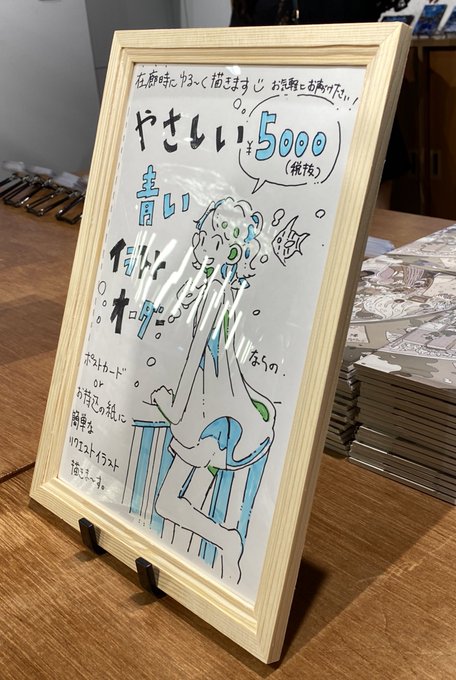 在廊時にゆる〜く描きます お気軽にお声がけ下さい!
やさしい
¥5000
(税抜)
青い
イラスト
オーダー
ならの.
ポストカード
or
お持込の紙に
簡単な
リクエストイラスト
描きま〜す。